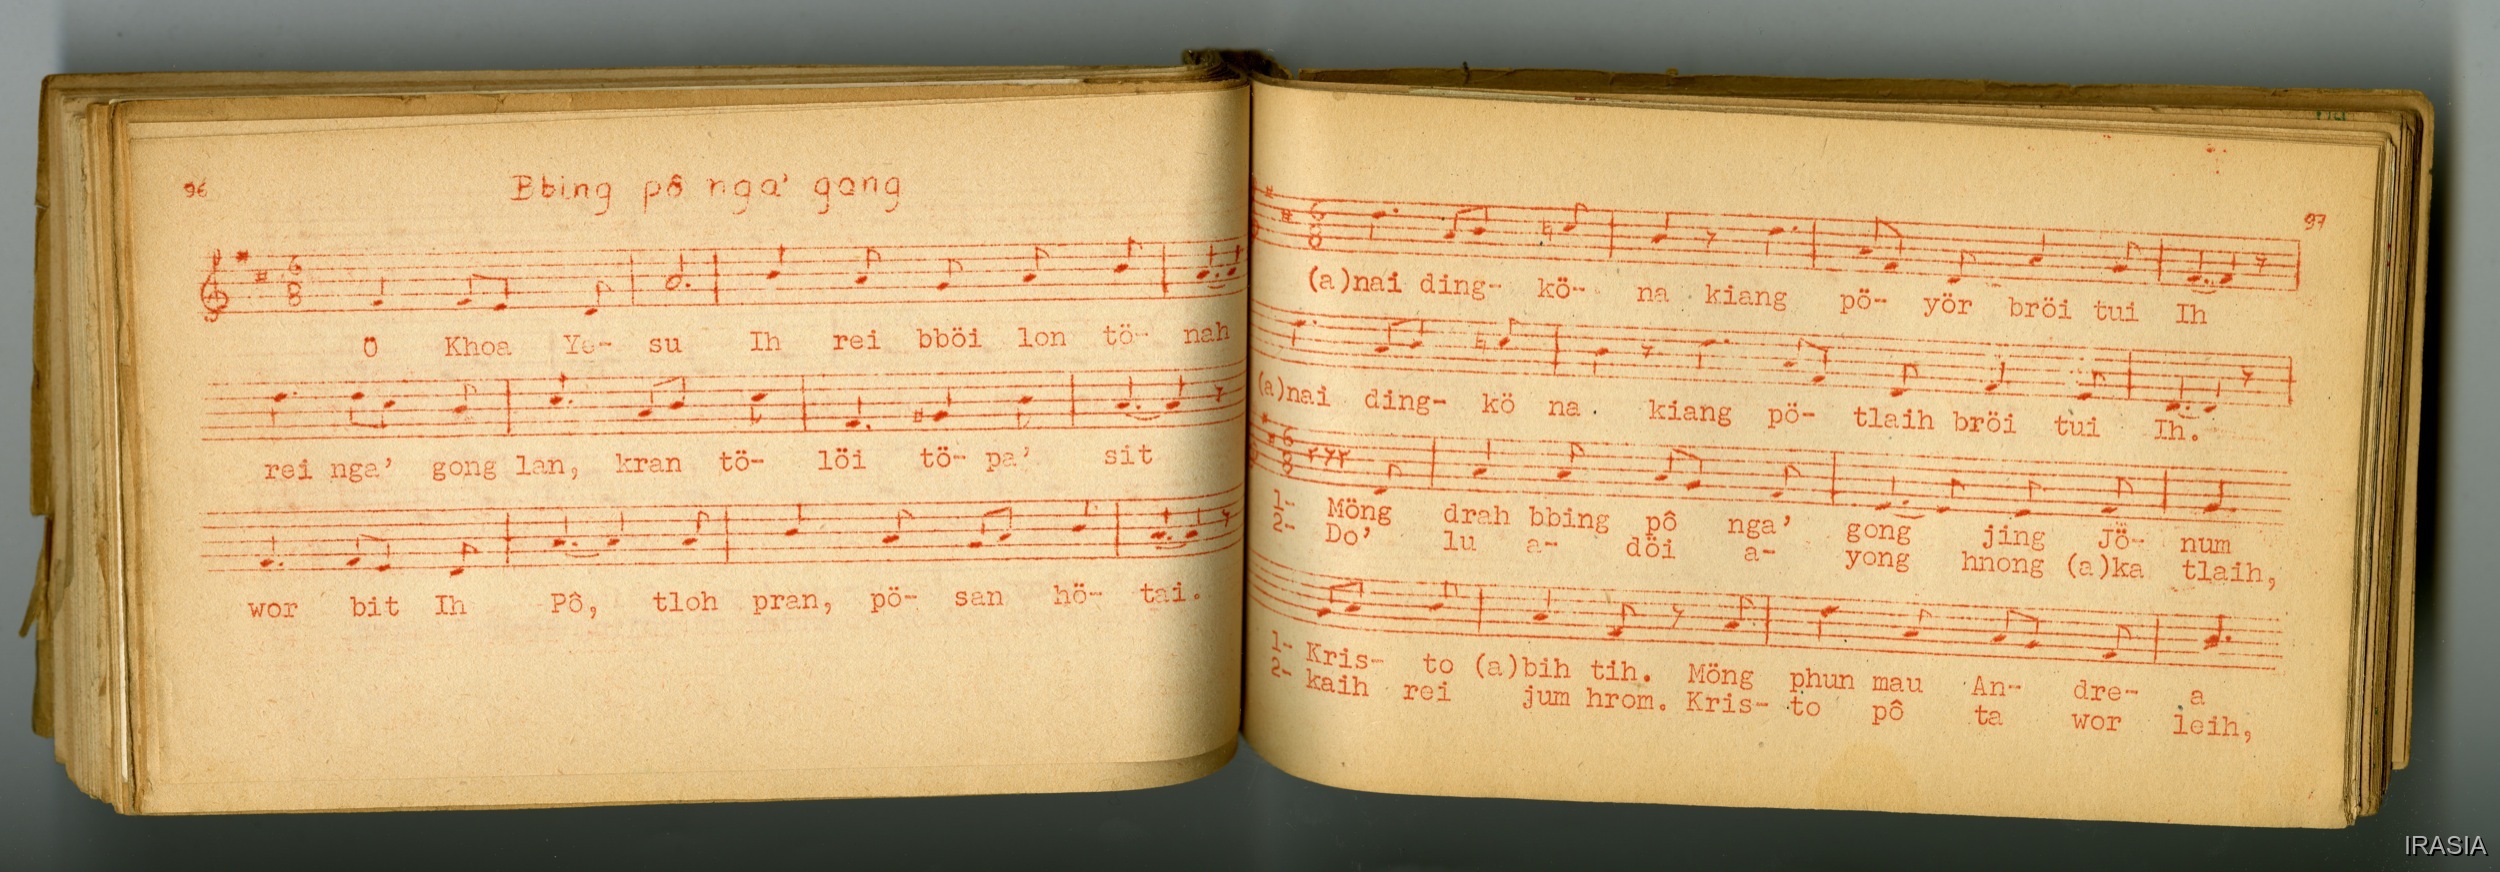 96
Bbing pô nga' gong
Ơ Khoa Ye- su Ih rei bböi lon tö- nah
rei nga' gong lan, kran tö- löi tö- pa' sit
wor bit Ih Pô, tloh pran, pö- san hö- tai.
97
(a)nai ding- kö- na kiang pö- yör bröi tui Ih
(a)nai ding- kö na kiang pö- tlaih bröi tui Ih.
1- Möng drah bbing pô nga' gong jing Jö- num
2- Do' lu a- döi a- yong hnong (a)ka tlaih,
1- Kris- to (a)bih tih. Möng phun mau An- dre- a
2- kaih rei jum hrom. Kris- to pô ta wor leih,
IRASIA